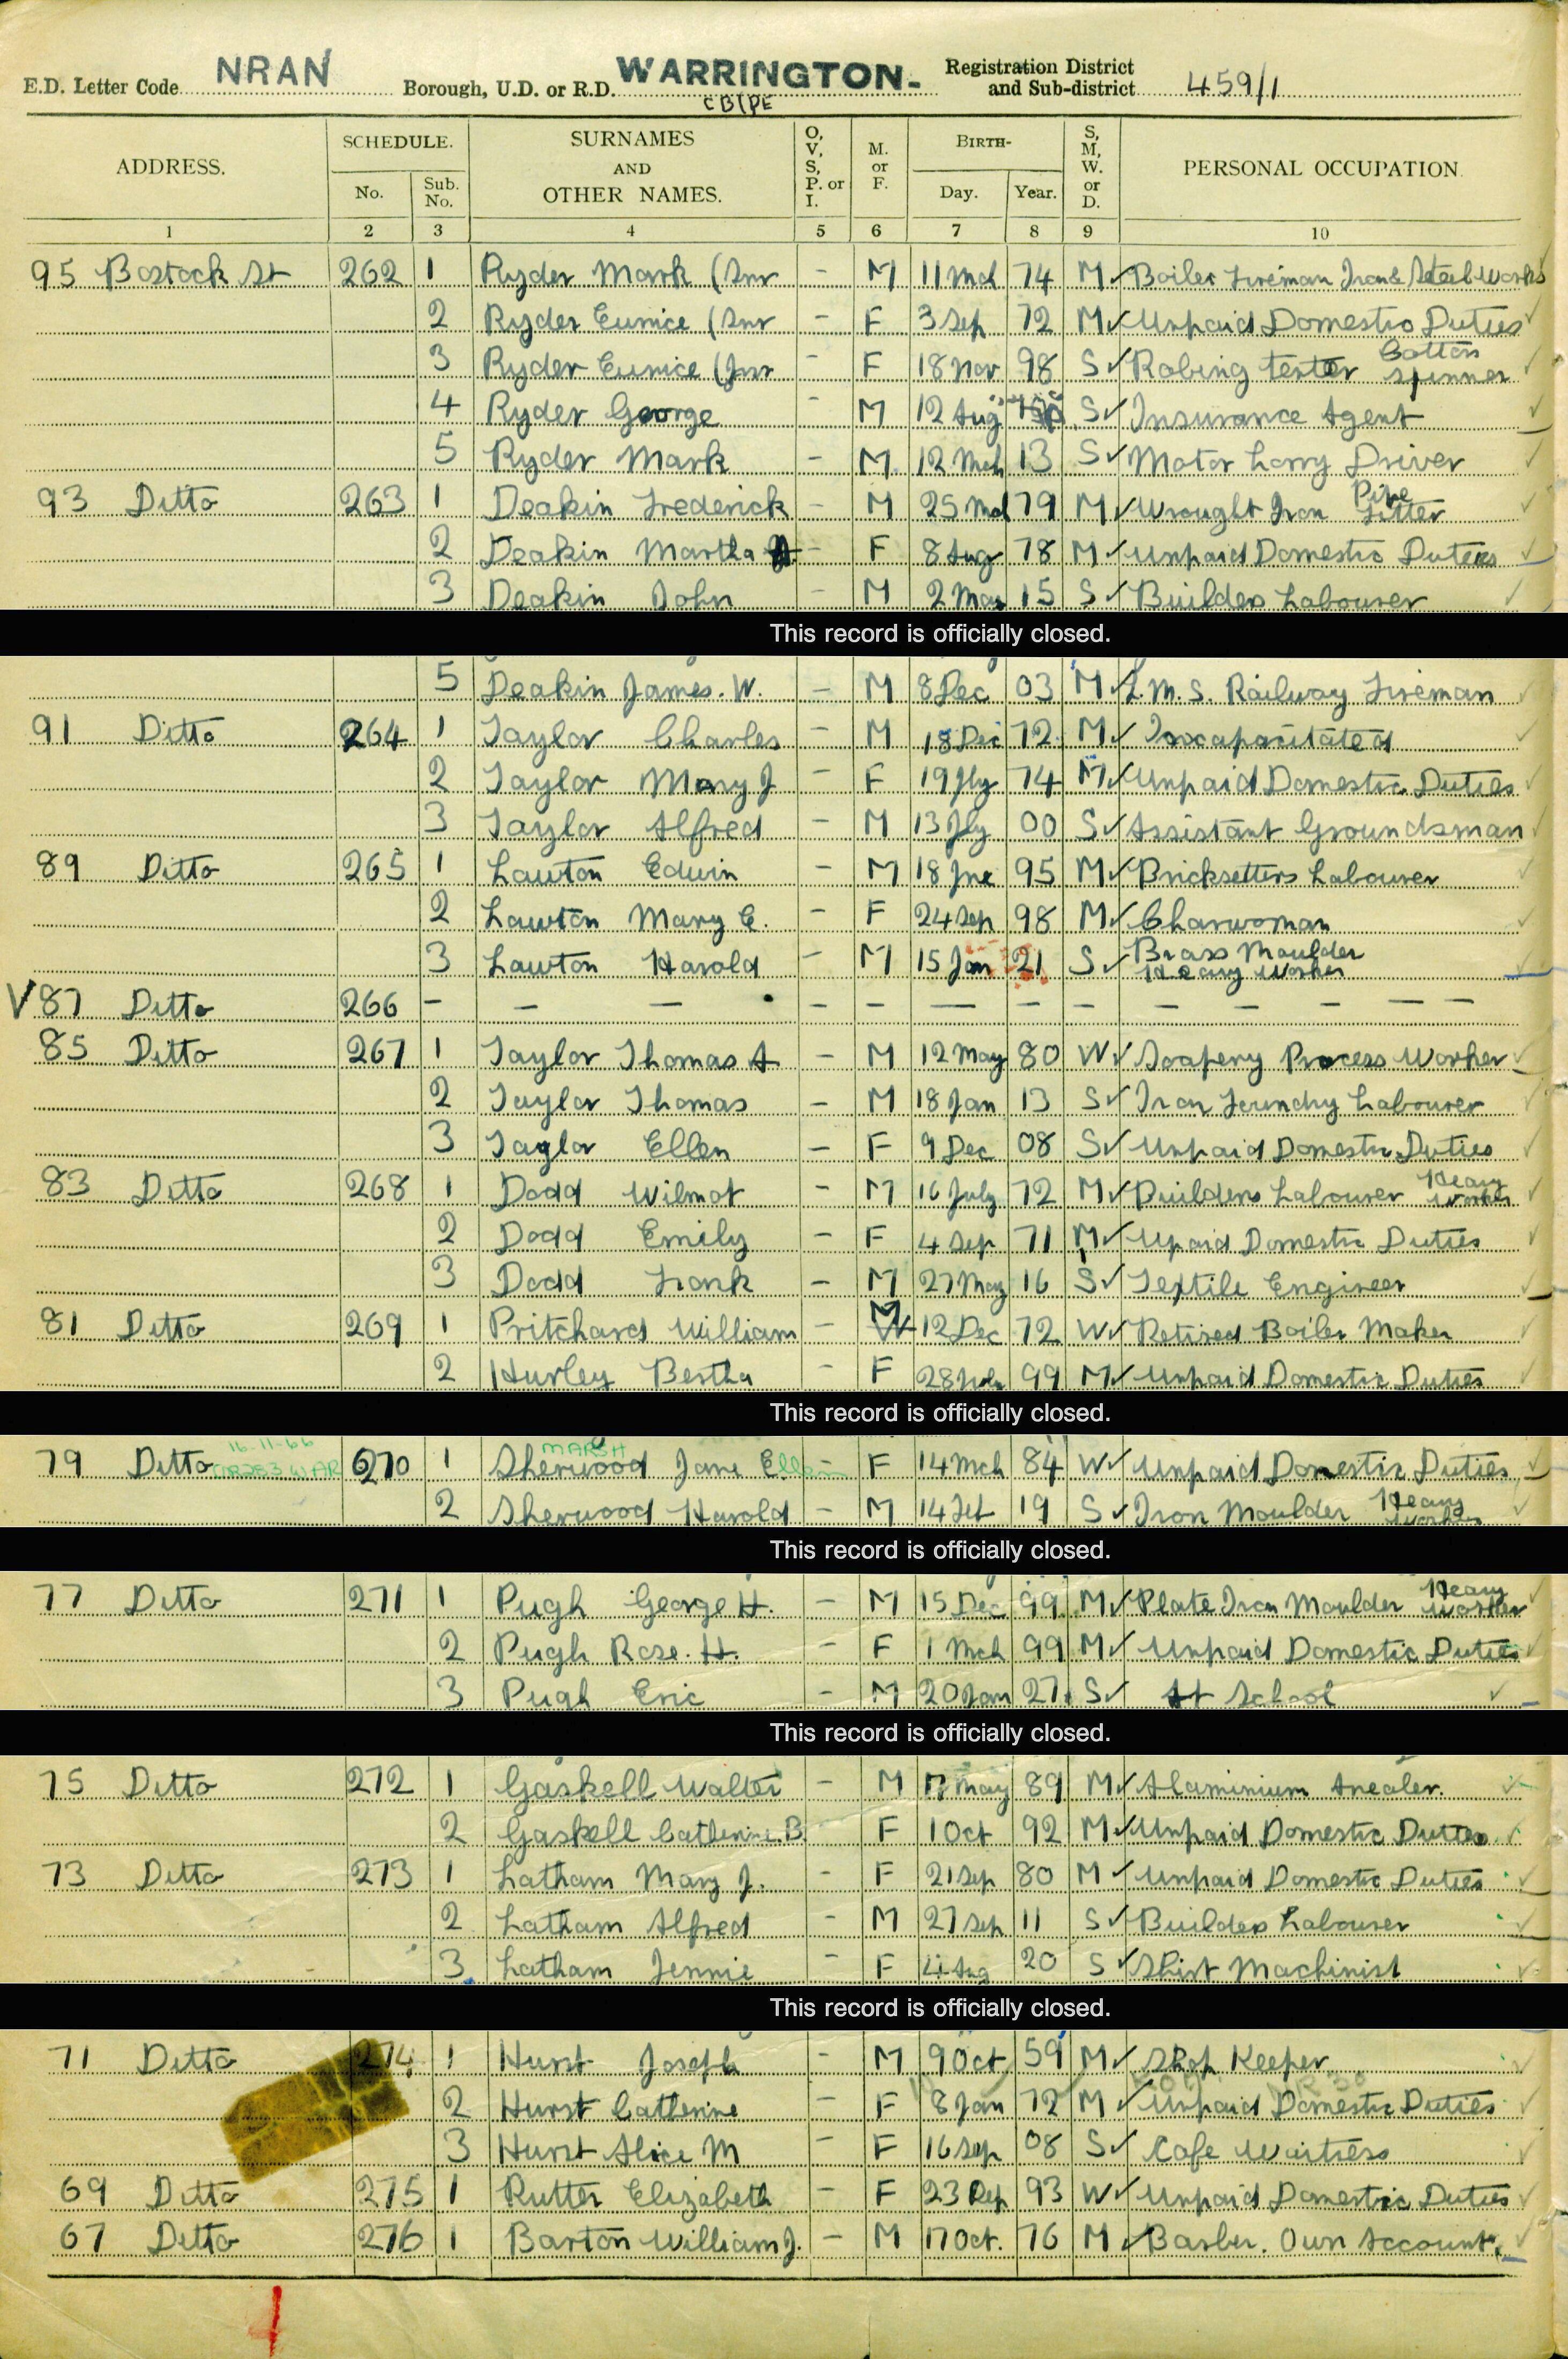 E.D. Letter Code NRAN Borough, U.D. or R.D. WARRINGTON. CB(PE Registration District and Sub-district 459/1
ADDRESS. SCHEDULE. No. Sub. No. SURNAMES AND OTHER NAMES. O, V, S, P. or I. M. or F. BIRTH- Day. Year. S, M, W. or D. PERSONAL OCCUPATION
1 2 3 4 5 6 7 8 9 10
95 Bostock St 262 1 Ryder Mark (Snr - M 11 Mch 74 M Boiler Fireman Iron & Steel Works
2 Ryder Eunice (Snr - F 3 Sep 72 M Unpaid Domestic Duties
3 Ryder Eunice (Jnr - F 18 Nov 98 S Robing tester Cotton spinner
4 Ryder George - M 12 Aug S Insurance Agent
5 Ryder Mark - M 12 Mch 13 S Motor Lorry Driver
93 Ditto 263 1 Deakin Frederick - M 25 Mch 79 M Wrought Iron Pipe Fitter
2 Deakin Martha A - F 8 Aug 78 M Unpaid Domestic Duties
3 Deakin John - M 2 May 15 S Builders Labourer
This record is officially closed.
5 Deakin James. W. - M 8 Dec 03 M L.M.S. Railway Fireman
91 Ditto 264 1 Taylor Charles - M 18 Dec 72 M Incapacitated
2 Taylor Mary J - F 19 Jly 74 M Unpaid Domestic Duties
3 Taylor Alfred - M 13 Jly 00 S Assistant Groundsman
89 Ditto 265 1 Lawton Edwin M 18 Jne 95 M Bricksetters Labourer
2 Lawton Mary E. - F 24 Sep 98 M Charwoman
3 Lawton Harold - M 15 Jan 21 S Brass Moulder Heavy Worker
V 87 Ditto 266 - - - - - - - - - - - - -
85 Ditto 267 1 Taylor Thomas A - M 12 May 80 W Soapery Process Worker
2 Taylor Thomas - M 18 Jan 13 S Iron Foundry Labourer
3 Taylor Ellen - F 9 Dec 08 S Unpaid Domestic Duties
83 Ditto 268 1 Dodd Wilmot - M 16 July 72 M Builders Labourer Heavy Worker
2 Dodd Emily - F 4 Sep 71 M Upaid Domestic Duties
3 Dodd Frank - M 27 May 16 S Textile Engineer
81 Ditto 269 1 Pritchard William - M 12 Dec 72 W Retired Boiler Maker
2 Hurley Bertha - F 28 99 M Unpaid Domestic Duties
This record is officially closed.
16-11-66 MARSH
79 Ditto 270 1 Sherwood Jane Ellen - F 14 Mch 84 W Unpaid Domestic Duties
2 Sherwood Harold - M 14 Feb 19 S Iron Moulder Heavy Worker
This record is officially closed.
77 Ditto 271 1 Pugh George H. - M 15 Dec 99 M Plate Iron Moulder Heavy Worker
2 Pugh Rose. H. - F 1 Mch 99 M Unpaid Domestic Duties
3 Pugh Eric - M 20 Jan 27 S At School
This record is officially closed.
75 Ditto 272 1 Gaskell Walter - M 17 May 89 M Aluminium Anealer.
2 Gaskell Catherine. B - F 1 Oct 92 M Unpaid Domestic Duties
73 Ditto 273 1 Latham Mary J. - F 21 Sep 80 M Unpaid Domestic Duties
2 Latham Alfred - M 27 Sep 11 S Builders Labourer
3 Latham Jennie - F 4 Aug 20 S Shirt Machinist
This record is officially closed.
71 Ditto 274 1 Hurst Joseph - M 9 Oct 59 M Shop Keeper
2 Hurst Catherine - F 8 Jan 72 M Unpaid Domestic Duties
3 Hurst Alice M - F 16 Sep 08 S Cafe Waitress
69 Ditto 275 1 Rutter Elizabeth - F 23 Sep 93 W Unpaid Domestic Duties
67 Ditto 276 1 Barton William J. - M 17 Oct. 76 M Barber. Own Account.